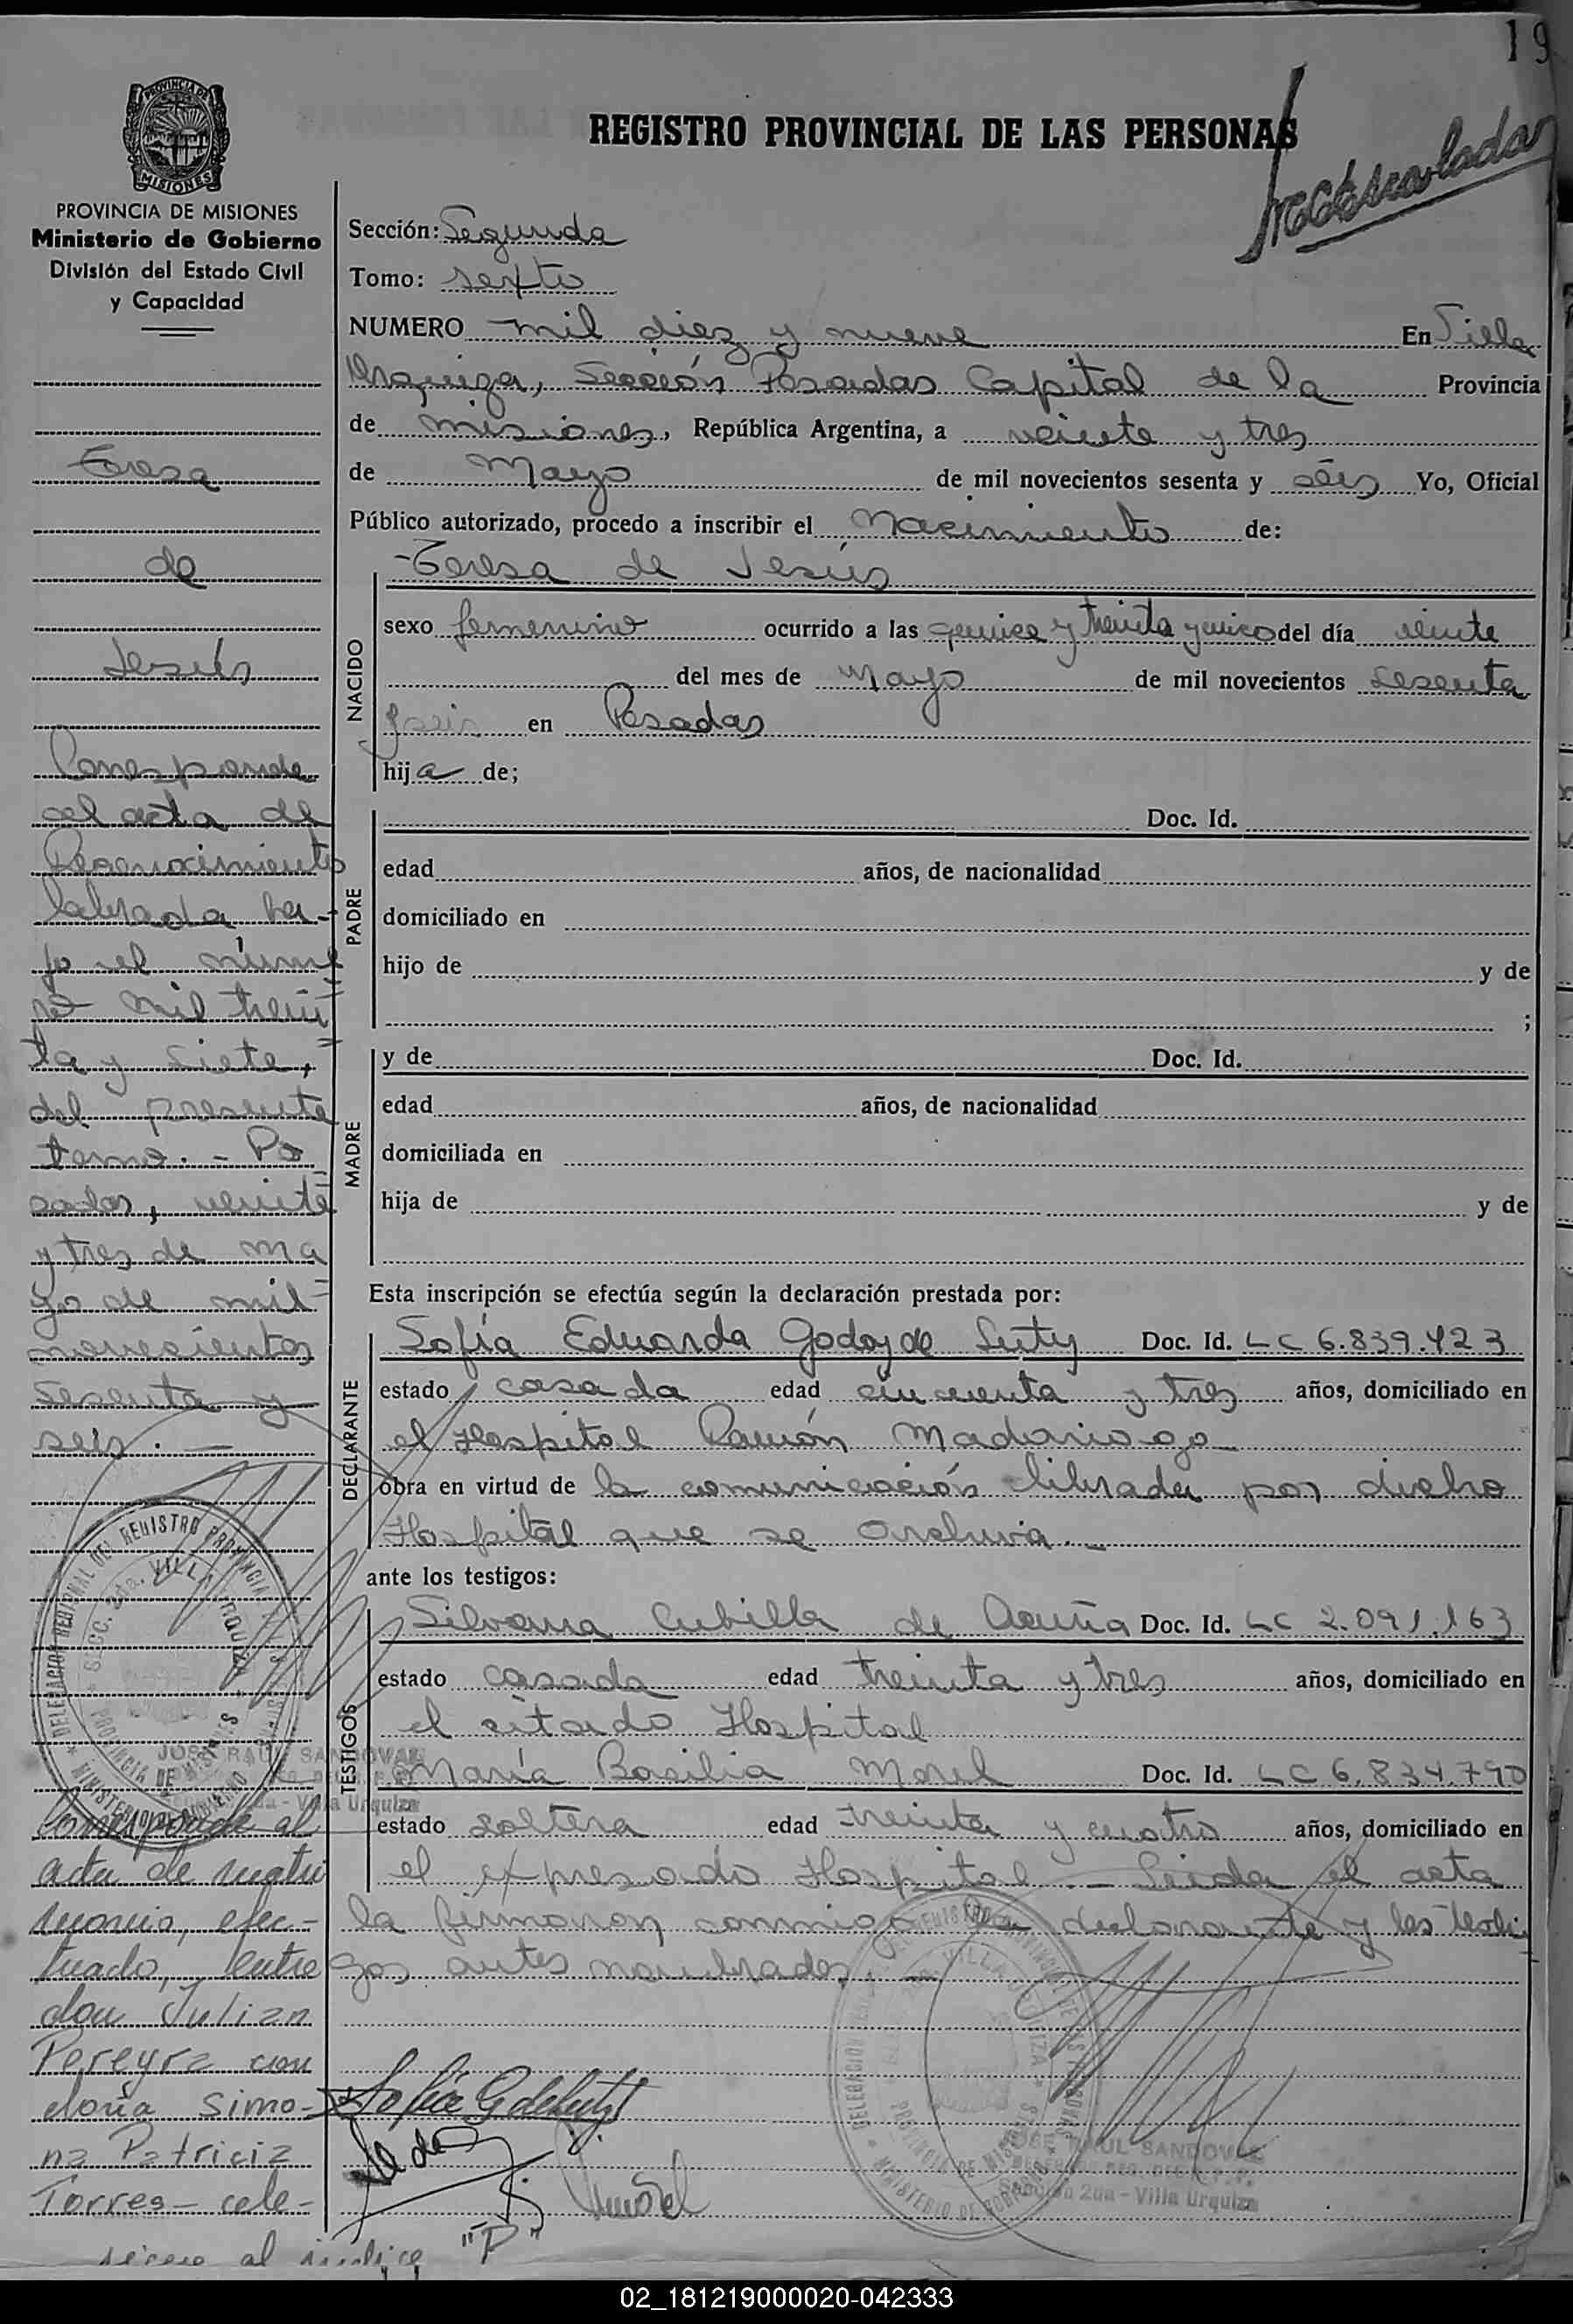 19
PROVINCIA DE
MISIONES
PROVINCIA DE MISIONES
Ministerio de Gobierno
División del Estado Civil
y Capacidad
Teresa
de
Jesús
Corresponde
al acta de
Reconocimiento
labrada ba-
jo el núme
ro mil trein
ta y siete,
del presente
tomo. - Po
sadas, veinte
y tres de ma
yo de mil
novecientos
sesenta y
seis. -
Corresponde al
acta de matri
monio, efec-
tuado, entre
don Julian
Pereyra con
doña Simo-
na Patricia
Torres - cele-
REGISTRO PROVINCIAL DE LAS PERSONAS
Sección: Segunda
Tomo: sexto
NUMERO mil diez y nueve En Villa
Urquiza, Sección Posadas Capital de la Provincia
de misiones, República Argentina, a veinte y tres
de Mayo de mil novecientos sesenta y séis Yo, Oficial
Público autorizado, procedo a inscribir el Nacimiento de:
-Teresa de Jesús
NACIDO
sexo femenino ocurrido a las quince y treinta y cinco del día veinte
del mes de Mayo de mil novecientos sesenta
y seis en Posadas
hija de;
PADRE
Doc. Id.
edad años, de nacionalidad
domiciliado en
hijo de y de
;
MADRE
y de Doc. Id.
edad años, de nacionalidad
domiciliada en
hija de y de
Esta inscripción se efectúa según la declaración prestada por:
DECLARANTE
Sofía Eduarda Godoy de Doc. Id. LC 6.839.423
estado casada edad cincuenta y tres años, domiciliado en
el Hospital Ramón Madariaga
obra en virtud de la comunicación librada por dicho
Hospital que se archiva. -
ante los testigos:
TESTIGOS
Silvana Cubilla de Acuña Doc. Id. LC 2.091.163
estado casada edad treinta y tres años, domiciliado en
el citado Hospital
María Basilia Morel Doc. Id. LC 6.834.790
estado soltera edad treinta y cuatro años, domiciliado en
el expresado Hospital. - Leida el acta
la firmaron conmigo la declarante y los testi
gos antes nombrados. -
JOSE RAUL SANDOVAL
Sección 2da - Villa Urquiza
al indice "P"
02_181219000020-042333